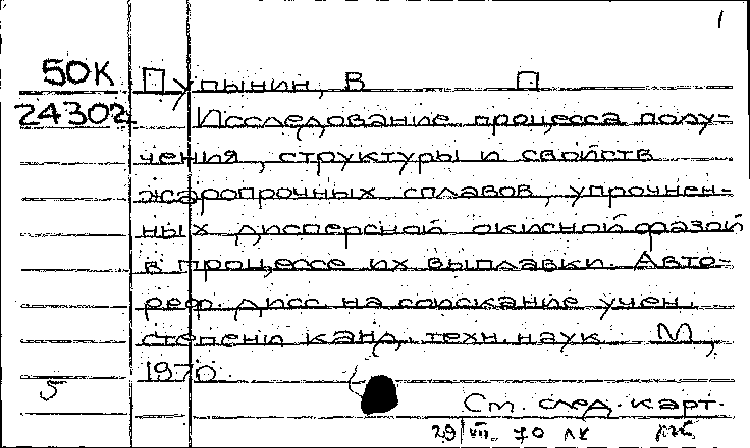 1
50К Пупынин, В П
24302 Исследование процесса полу-
чения, структуры и свойств
жаропрочных сплавов, упрочнен-
ных дисперсной окисной фазой
в процессе их выплавки. Авто-
реф. дисс. на соискание учен.
степени канд. техн. наук. М,
1970.
5
См. след. карт.
29/VII. 70 ЛК